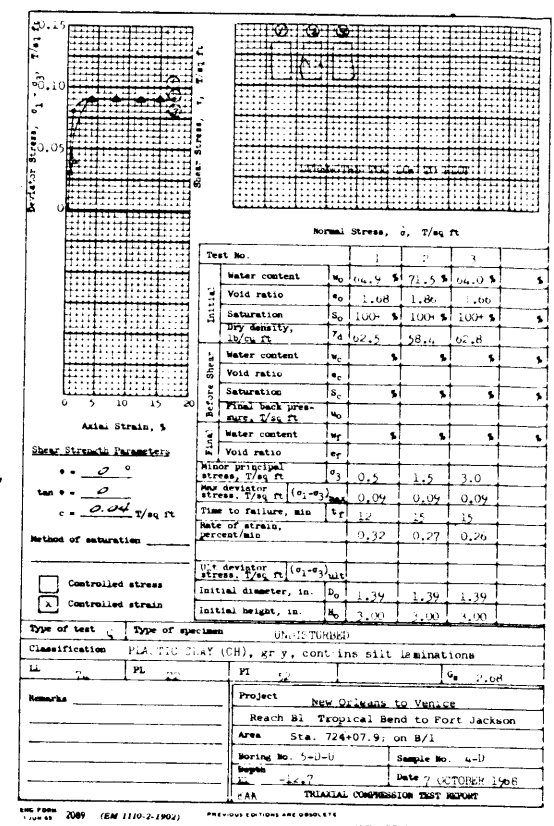 0.15
0.10
0.05
0
Deviator Stress, σ1 - σ3, T/sq ft
Shear Stress, τ, T/sq ft
0 5 10 15 20
Axial Strain, %
Normal Stress, σ, T/sq ft
Shear Strength Parameters
φ = 0 °
tan φ = 0
c = 0.04 T/sq ft
Method of saturation
Controlled stress
x Controlled strain
Test No. 1 2 3
Initial
Water content w0 64.9 % 71.5 % 64.0 % %
Void ratio e0 1.68 1.86 1.66
Saturation S0 100+ % 100+ % 100+ % %
Dry density, lb/cu ft γd 62.5 58.4 62.8
Before Shear
Water content wc % % % %
Void ratio ec
Saturation Sc % % % %
Final back pressure, T/sq ft u0
Final
Water content wf % % % %
Void ratio ef
Minor principal stress, T/sq ft σ3 0.5 1.5 3.0
Max deviator stress, T/sq ft (σ1-σ3)max 0.09 0.09 0.09
Time to failure, min tf 12 15 15
Rate of strain, percent/min 0.32 0.27 0.26
Ult deviator stress, T/sq ft (σ1-σ3)ult
Initial diameter, in. D0 1.39 1.39 1.39
Initial height, in. H0 3.00 3.00 3.00
Type of test Q Type of specimen UNDISTURBED
Classification PLASTIC CLAY (CH), gray, contains silt laminations
LL PL 22 PI 52 Gs 2.68
Remarks
Project New Orleans to Venice
Reach B1 Tropical Bend to Fort Jackson
Area Sta. 724+07.9; on B/l
Boring No. 5-D-U Sample No. 4-D
Depth El -12.7 Date 7 OCTOBER 1968
TRIAXIAL COMPRESSION TEST REPORT
ENG FORM 2089 (EM 1110-2-1902) PREVIOUS EDITIONS ARE OBSOLETE